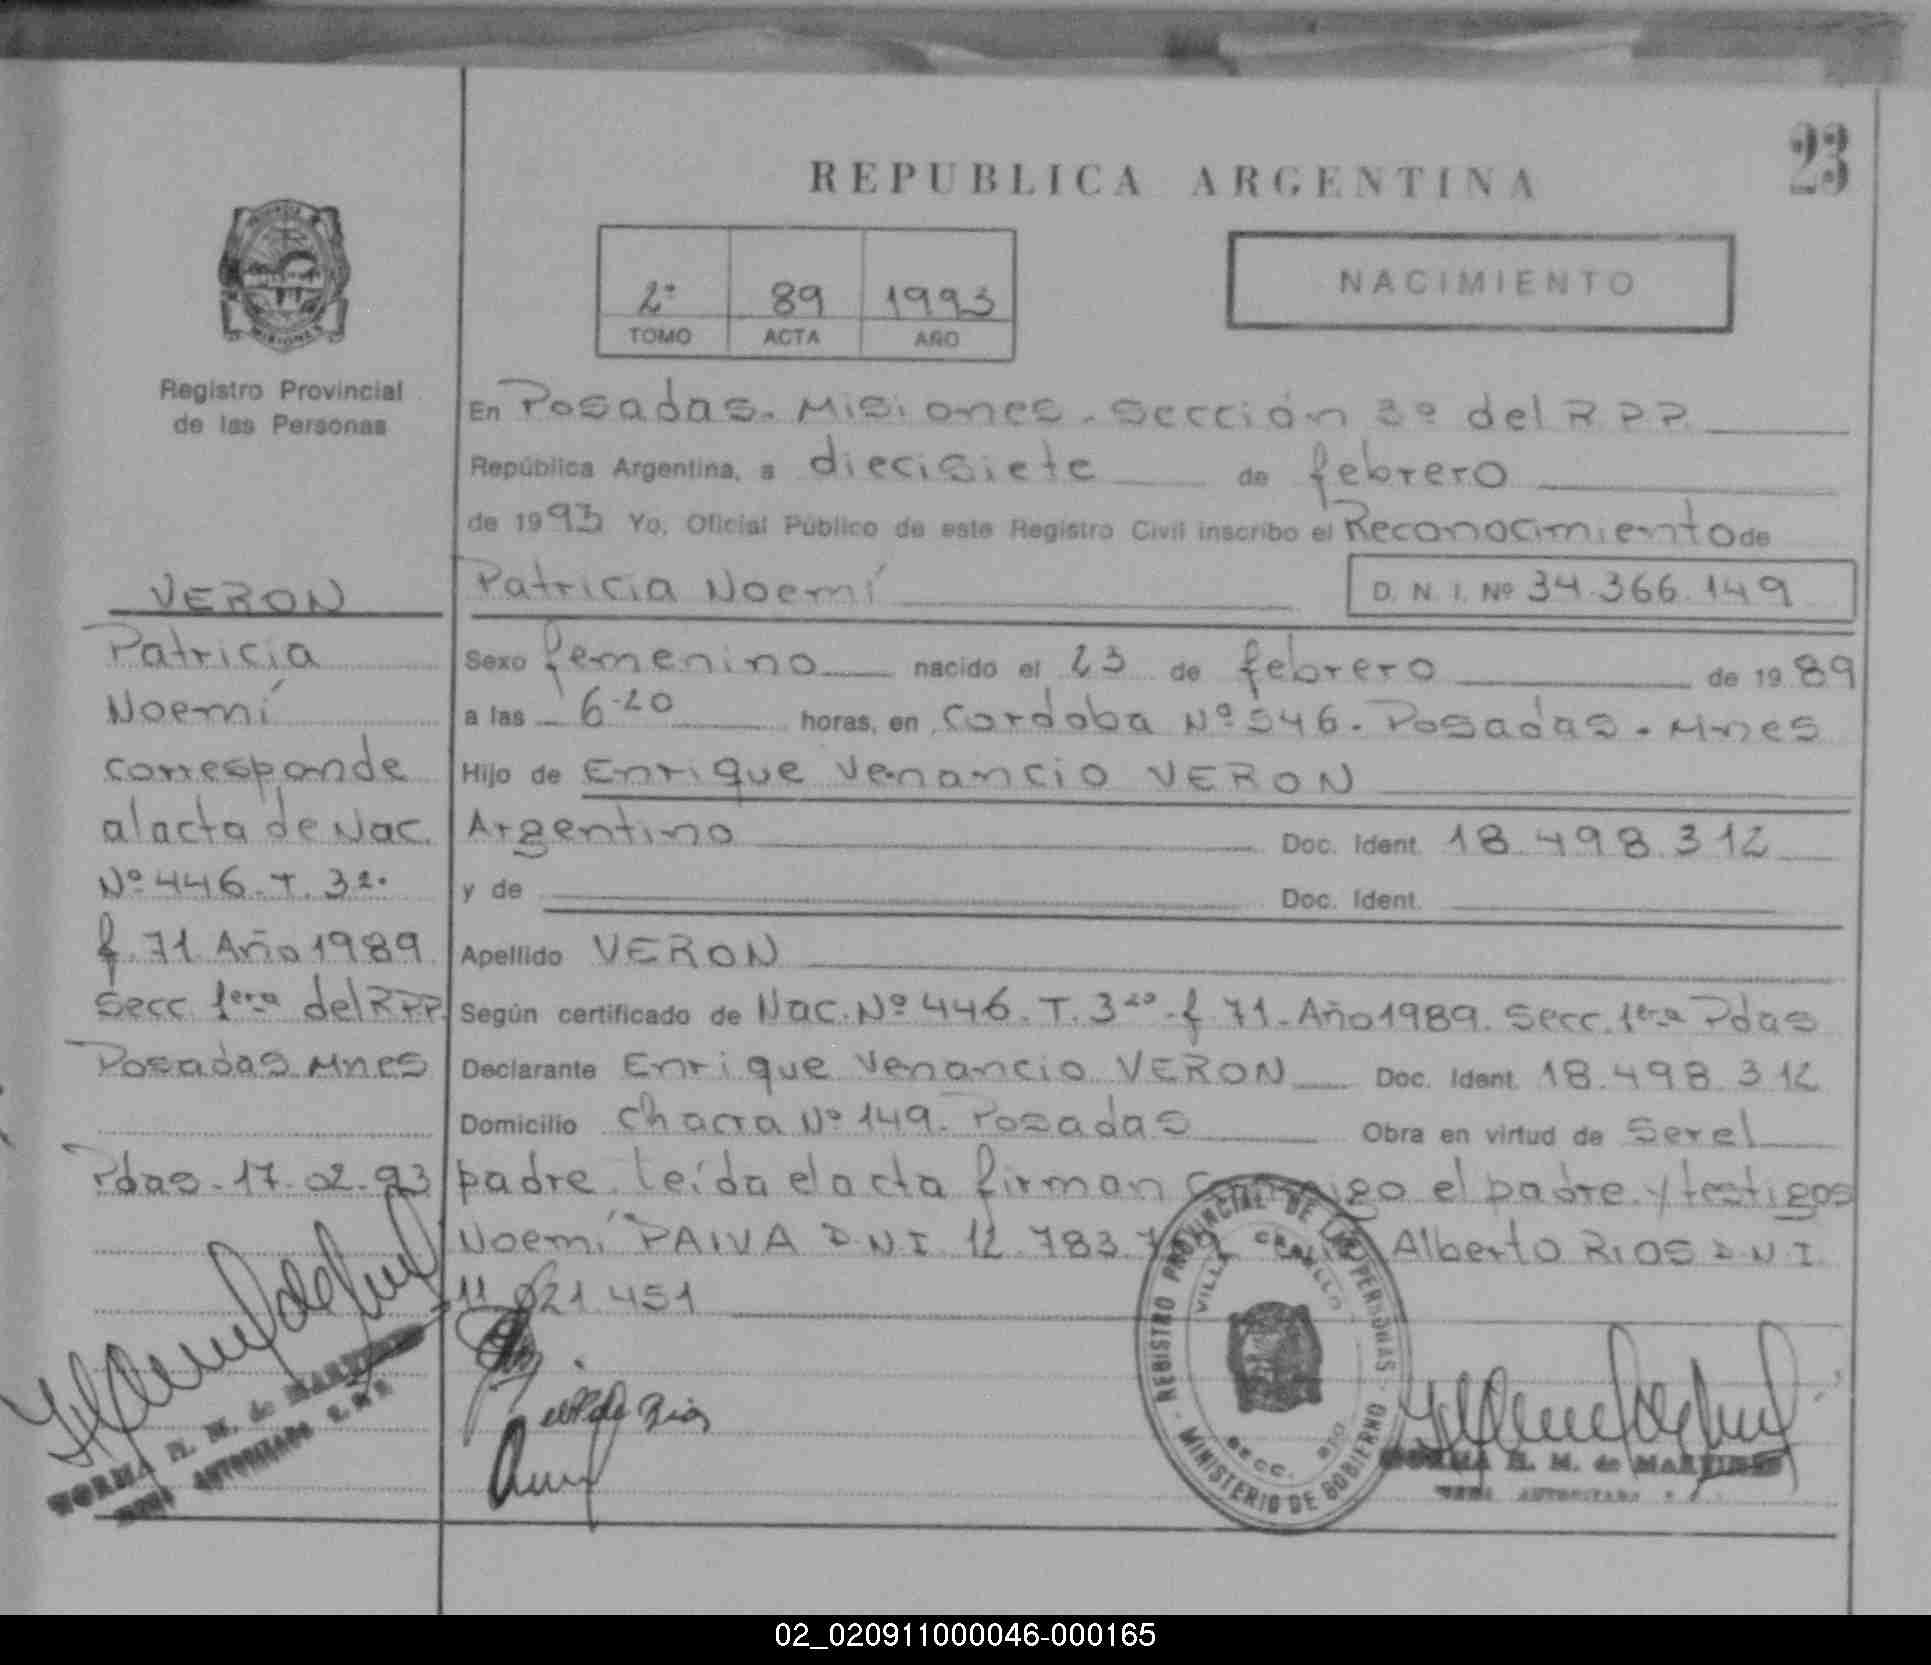 23
REPUBLICA ARGENTINA
2º 89 1993
TOMO ACTA AÑO
NACIMIENTO
Registro Provincial
de las Personas
En Posadas. Misiones. Sección 3º del R.P.P.
República Argentina, a diecisiete de febrero
de 1993 Yo, Oficial Público de este Registro Civil inscribo el Reconocimiento de
Patricia Noemí D. N. I. Nº 34.366.149
Sexo femenino nacido el 23 de febrero de 1989
a las 6-20 horas, en Cordoba Nº 546. Posadas. Mnes
Hijo de Enrique Venancio VERON
Argentino Doc. Ident. 18.498.312
y de Doc. Ident.
Apellido VERON
Según certificado de Nac. Nº 446. T. 3º. f. 71. Año 1989. Secc. 1era Pdas
Declarante Enrique Venancio VERON Doc. Ident. 18.498.312
Domicilio Chacra Nº 149. Posadas Obra en virtud de Ser el
padre. Leída el acta firman el padre y testigos
Noemí PAIVA D.N.I. 12.783. Alberto RIOS D.N.I.
11.021.451
VERON
Patricia
Noemí
corresponde
al acta de Nac.
Nº 446. T. 3º.
f. 71. Año 1989.
Secc. 1era del R.P.P.
Posadas Mnes
Pdas. 17.02.93
NORMA H. M. de MARTINEZ
AUTORIZADA
REGISTRO PROVINCIAL DE LAS PERSONAS
MINISTERIO DE GOBIERNO
VILLA
SECC.
NORMA H. M. de MARTINEZ
AUTORIZADA
02_020911000046-000165